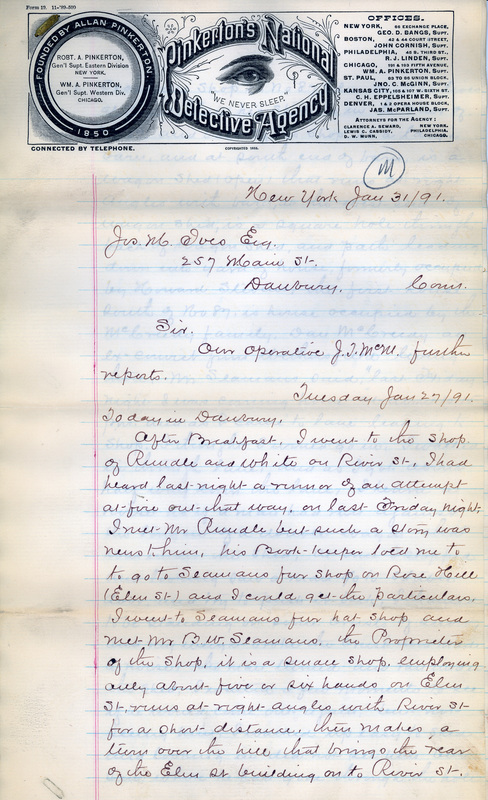 Form 19. 11-'90-500
FOUNDED BY ALLAN PINKERTON.
1850
ROBT. A. PINKERTON,
Gen'l Supt. Eastern Division
NEW YORK.
WM. A. PINKERTON,
Gen'l Supt. Western Div.
CHICAGO.
CONNECTED BY TELEPHONE.
Pinkerton's National
"WE NEVER SLEEP."
Detective Agency
OFFICES.
NEW YORK, EXCHANGE PLACE,
GEO. D. BANGS, Supt.
BOSTON, 42 & 44 COURT STREET,
JOHN CORNISH, Supt.
PHILADELPHIA, 45 S. THIRD ST.,
R. J. LINDEN, Supt.
CHICAGO, 191 & 193 FIFTH AVENUE,
WM. A. PINKERTON, Supt.
ST. PAUL,
JNO. C. McGINN, Supt.
KANSAS CITY, 105 & 107 W. SIXTH ST.
C. H. EPPELSHEIMER, Supt.
DENVER, 1 & 2 OPERA HOUSE BLOCK,
JAS. McPARLAND, Supt.
ATTORNEYS FOR THE AGENCY:
CLARENCE A. SEWARD, NEW YORK.
LEWIS C. CASSIDY, PHILADELPHIA.
D. W. MUNN, CHICAGO.
M
New York Jan 31/91.
Jos. M. Ives Esq.
257 Main St.
Danbury, Conn.
Sir.
Our Operative J.T.McM. further
reports.
Tuesday Jan 27/91.
Today in Danbury.
After Breakfast, I went to the shop
of Rundle and White on River St, I had
heard last night a rumor of an attempt
at fire out that way, on last Friday night.
I met Mr Rundle but such a story was
news to him, his Book-Keeper told me to
to go to Seamans fur shop on Rose Hill
(Elm St) and I could get the particulars.
I went to Seamans fur hat shop and
met Mr B.W. Seamans, the Proprietor
of the shop, it is a small shop, employing
only about five or six hands on Elm
St, runs at right angles with River St
for a short distance, then makes a
turn over the hill that brings the rear
of the Elm St building on to River St.